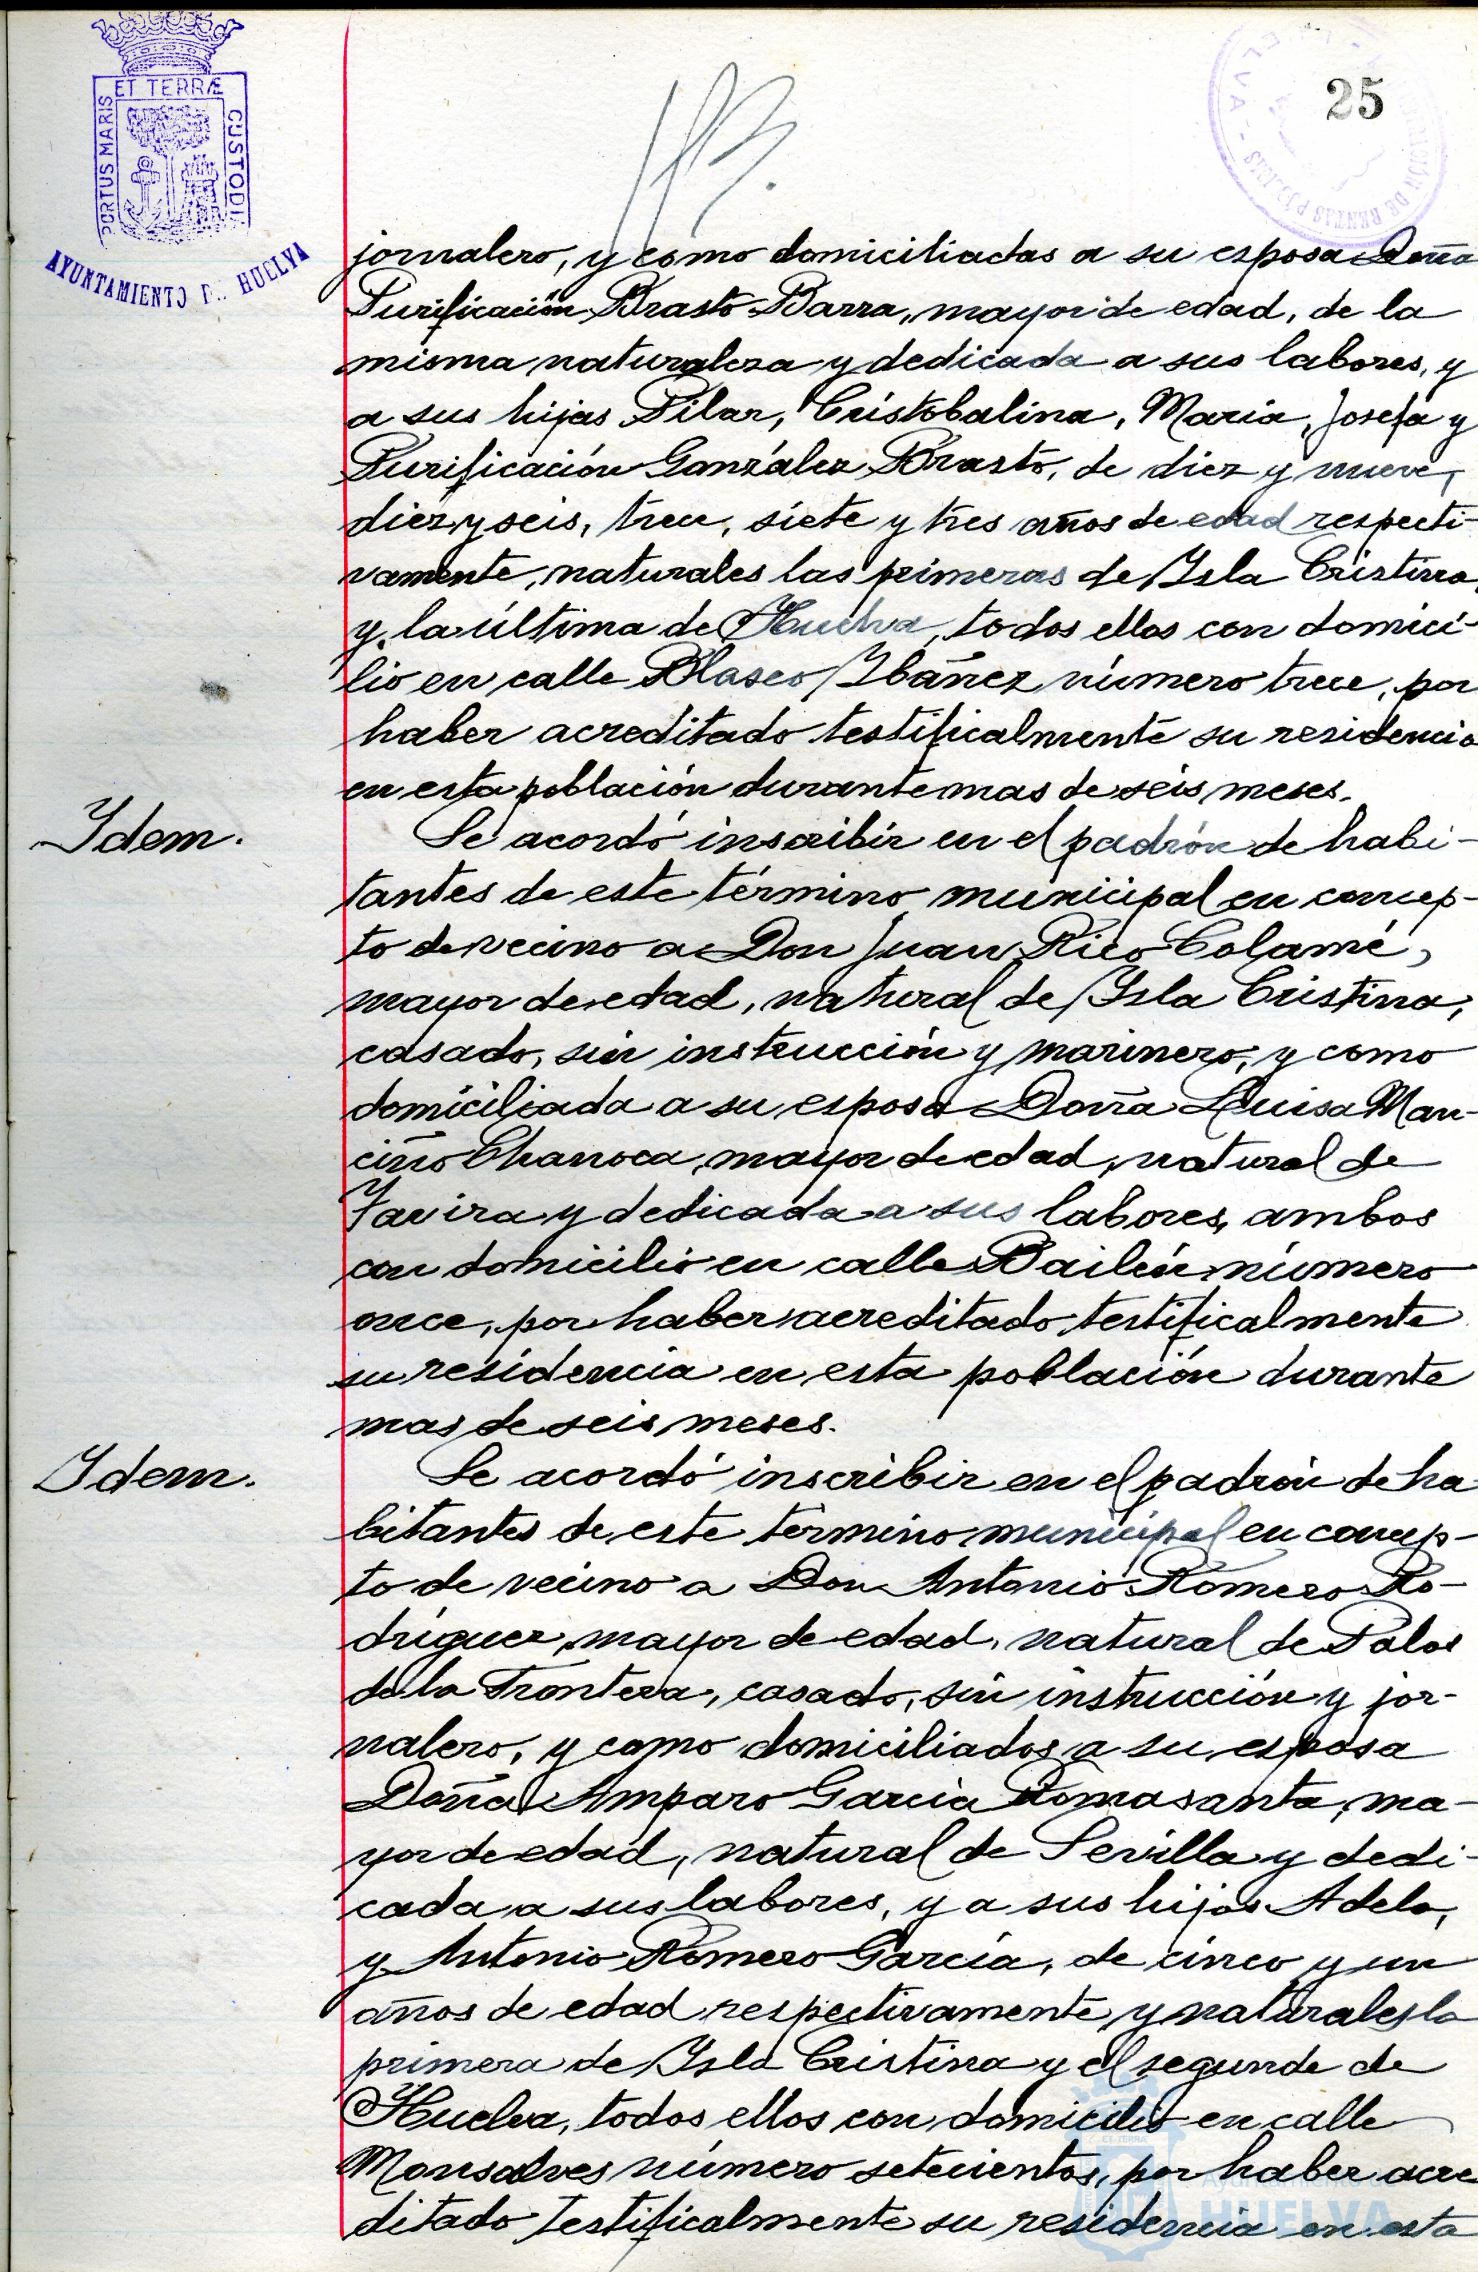 25
ET TERRÆ
PORTUS MARIS
CUSTODI
AYUNTAMIENTO DE HUELVA
jornalero, y como domiciliadas a su esposa Doña
Purificación Brasto Barra, mayor de edad, de la
misma naturaleza y dedicada a sus labores, y
a sus hijas Pilar, Cristobalina, María, Josefa y
Purificación González Brasto, de diez y nueve,
diez y seis, trece, siete y tres años de edad respecti-
vamente, naturales las primeras de Isla Cristina,
y la última de Huelva, todos ellos con domici-
lio en calle Blasco Ibáñez número trece, por
haber acreditado testificalmente su residencia
en esta población durante mas de seis meses.
Idem.
Se acordó inscribir en el padrón de habi-
tantes de este término municipal en concep-
to de vecino a Don Juan Rico Colamé,
mayor de edad, natural de Isla Cristina,
casado, sin instrucción y marinero, y como
domiciliada a su esposa Doña Luisa Man-
ciño Chanoca, mayor de edad, natural de
Tavira y dedicada a sus labores, ambos
con domicilio en calle Bailén número
once, por haber acreditado testificalmente
su residencia en esta población durante
mas de seis meses.
Idem.
Se acordó inscribir en el padrón de ha
bitantes de este término municipal en concep-
to de vecino a Don Antonio Romero Ro-
dríguez, mayor de edad, natural de Palos
de la Frontera, casado, sin instrucción y jor-
nalero, y como domiciliados a su esposa
Doña Amparo García Romasanta, ma-
yor de edad, natural de Sevilla y dedi-
cada a sus labores, y a sus hijos Adela,
y Antonio Romero García, de cinco y un
años de edad respectivamente y naturales la
primera de Isla Cristina y el segundo de
Huelva, todos ellos con domicilio en calle
Monsalves número setecientos, por haber acre
ditado testificalmente su residencia en esta
Ayuntamiento de
HUELVA